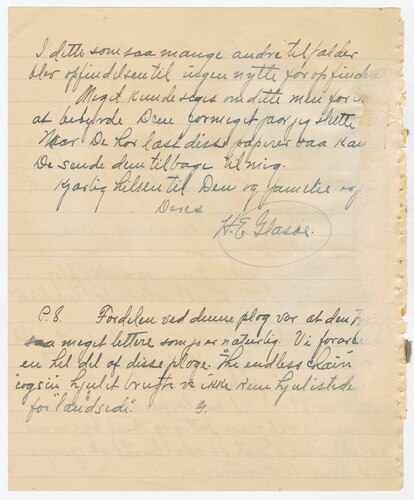 I dette som saa mange andre tilfælder
blev opfindelsen til ingen nytte for opfinde
Meget kunde seges om dette men for ik
at bebyrde Dem formeget maa jeg slutte
Naar De har læst disse papirer saa kan
De sende dem tilbage til mig.
Hjærtlig hilsen til Dem og familie og
Deres
H. E. Glasoe.
P.S. Fordelen ved denne plog var at den
saa meget lettere som per naturlig. Vi forarb
en hel del af disse ploge. "The endless chain
cogs in hjulit brugte vi ikke kun hjulistede
for "landside". G.